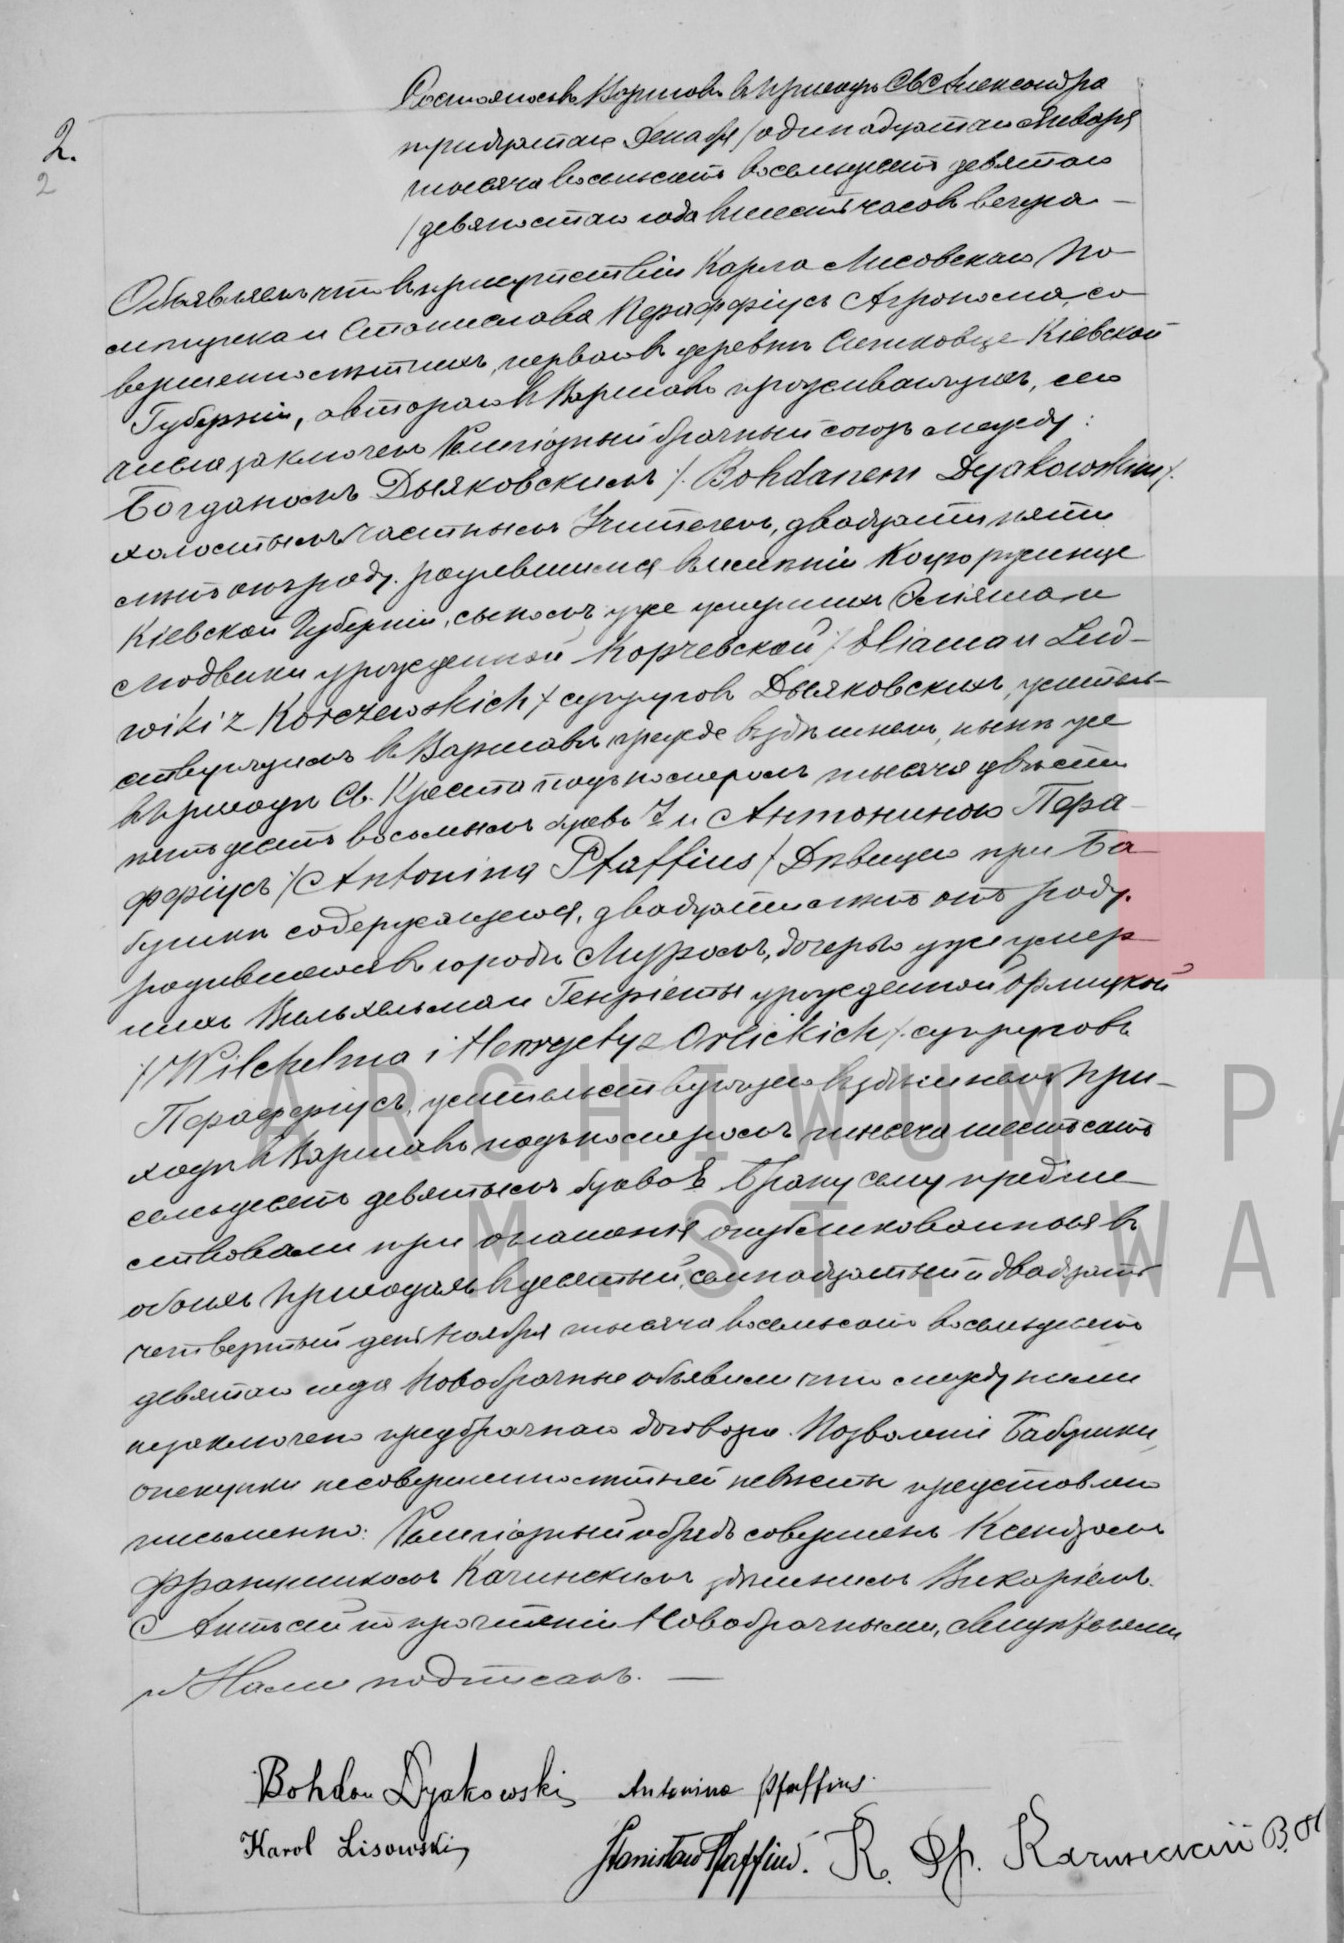 2.
2
Состоялось въ Варшавѣ въ приходѣ Св. Александра
тридцатаго Декабря / одинадцатаго Января
тысяча восемьсотъ восемьдесятъ девятаго
/ девяностаго года въ шесть часовъ вечера —
Объявляемъ что въ присутствіи Карла Лисовскаго По-
мѣщика и Станислава Пфаффіусъ Агронома, со-
вершеннолѣтнихъ, перваго въ деревнѣ Кіевской
Губерніи, а втораго въ Варшавѣ проживающихъ, сего
числа заключенъ Религіозный брачный союзъ между:
Богданомъ Дыяковскимъ /. Bohdanem Dyakowskim /.
холостымъ частнымъ Учителемъ, двадцати пяти
лѣтъ отъ роду, родившимся въ имѣніи
Кіевской Губерніи, сыномъ уже умершихъ и
Людвики урожденной Корчевской / Eliasza i Lud-
wiki z Korczewskich / супруговъ Дыяковскихъ, житель-
ствующимъ въ Варшавѣ прежде въ здѣшнемъ, нынѣ уже
въ приходѣ Св. Креста подъ номеромъ тысяча двѣсти
пятьдесятъ восьмымъ букв. и Антониною Пфа-
ффіусъ / Antonina Pfaffius / Дѣвицею при Ба-
бушкѣ содержащеюся, двадцати лѣтъ отъ роду,
родившеюся въ городѣ Муромъ, дочерью уже умер-
шихъ Вильхельма и Генріеты урожденной Орлицкой
/ Wilchelma i Henryety z Orlickich /. супруговъ
Пфаффіусъ, жительствующею въ здѣшнемъ При-
ходѣ въ Варшавѣ подъ номеромъ тысяча шестьсотъ
семьдесятъ девятымъ буква Браку сему предше-
ствовали три оглашенія опубликованныя въ
обоихъ приходахъ въ десятый, семнадцатый и двадцать
четвертый день Ноября тысяча восемьсотъ восемьдесятъ
девятаго года. Новобрачные объявили что между ними
не заключено предбрачнаго договора. Позволеніе Бабушки,
опекунки несовершеннолѣтней невѣсты представлено
письменно. Религіозный обрядъ совершенъ Ксендзомъ
Францишкомъ Качинскимъ здѣшнимъ Викаріемъ.
Актъ сей по прочтеніи Новобрачными, Свидѣтелями
и Нами подписанъ. —
Bohdan Dyakowski Antonina Pfaffius.
Karol Lisowski Stanisław Pfaffius. К. Фр. Качинскій В. П.
ARCHIWUM PA
M. ST. WAR